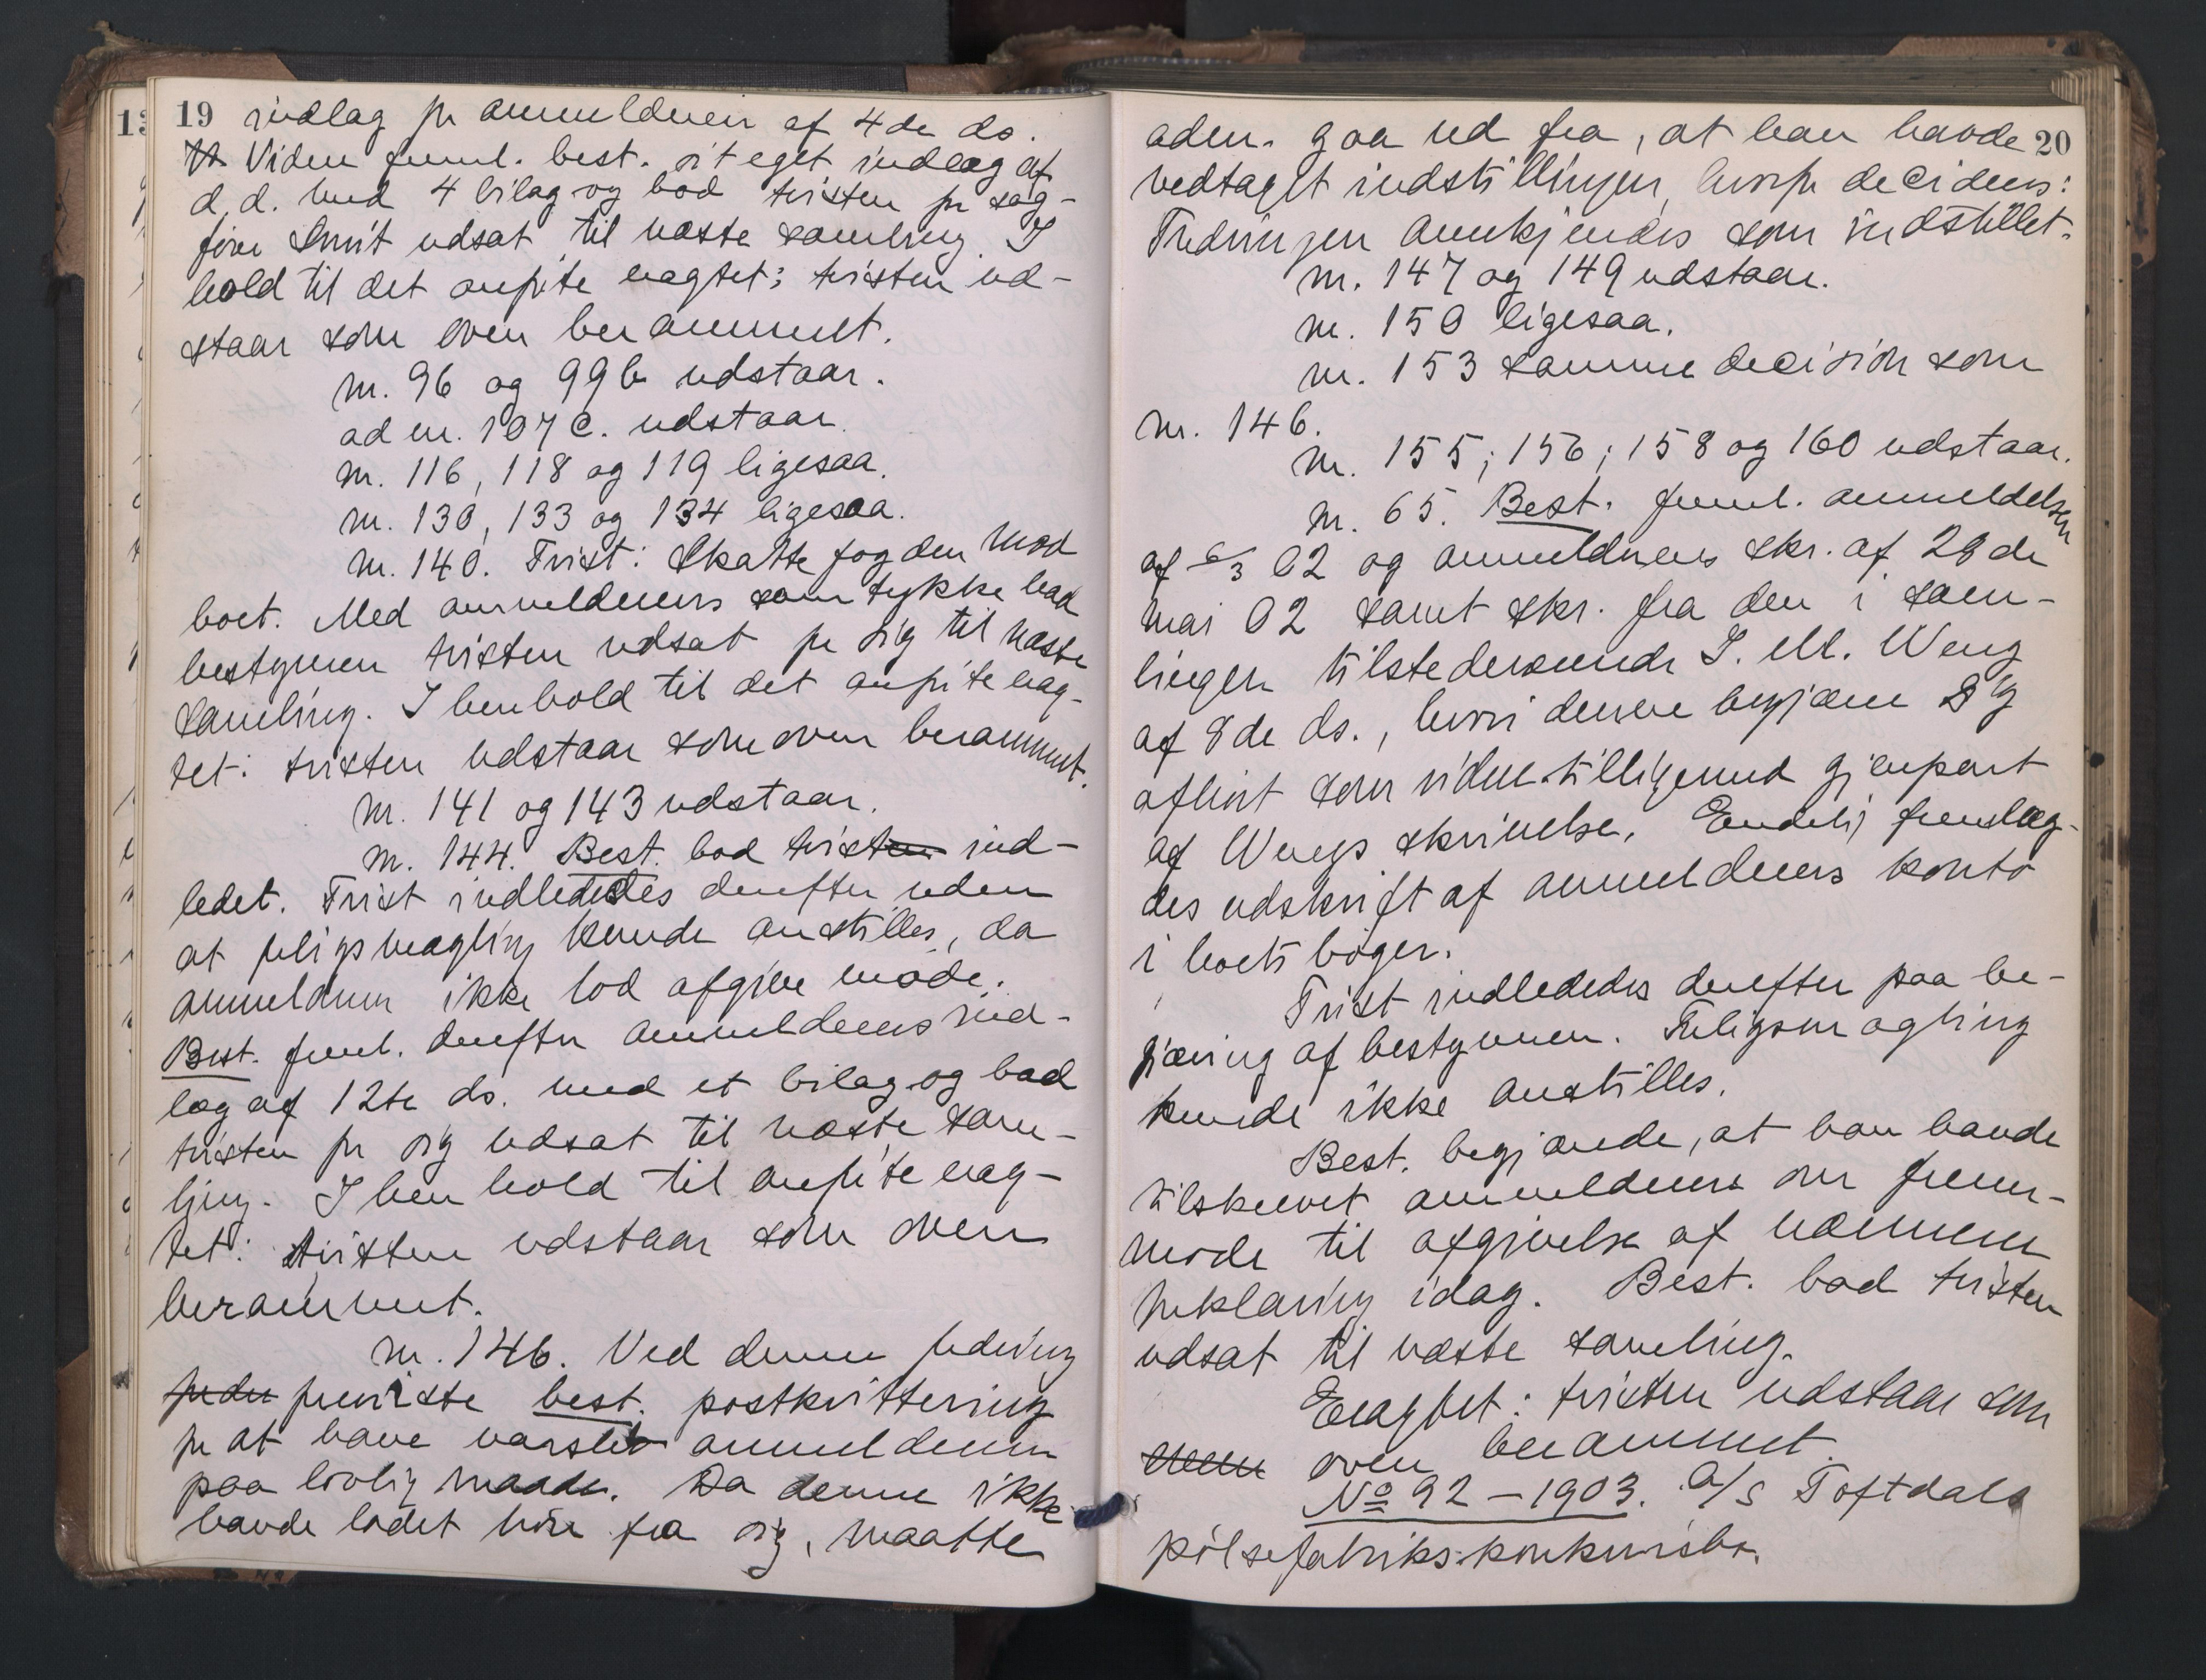 19 indlæg fr anmelderen af 4de ds.
Viden freml. best. sit eget indlæg af
d.d. med 4 bilag og bad tvisten for sag-
fører Smit udsat til næste samling. I
hold til det anførte eragtet: tvisten ud-
staar som oven berammet.
nr. 96 og 99 b udstaar.
ad nr. 107 c. udstaar.
nr. 116, 118 og 119 ligesaa.
nr. 130, 133 og 134 ligesaa.
nr. 140. Tvist: Skattefogden mod
boet. Med anmelderens samtykke bad
bestyreren tvisten udsat for sig til næste
samling. I henhold til det anførte erag-
tet: tvisten udstaar som oven berammet.
nr. 141 og 143 udstaar.
nr. 144. Best. bad tvisten ind-
ledet. Tvist indlededes derefter uden
at forligsmægling kunde anstilles, da
anmelderen ikke lod afgive møde.
Best. freml. derefter anmelderens ind-
læg af 12te ds. med et bilag og bad
tvisten for sig udsat til næste sam-
ling. I henhold til anførte erag-
tet: tvisten udstaar som oven
berammet.
nr. 146. Ved denne fordring
forden fremviste best. postkvittering
for at have varslet anmelderen
paa lovlig maade. Da denne ikke
havde ladet høre fra sig, maatte
20
aden. gaa ud fra, at han havde
vedtaget indstillingen, hvorfor decideres:
Fordringen anerkjendes som indstillet.
nr. 147 og 149 udstaar.
nr. 150 ligesaa.
nr. 153 samme decision som
nr. 146.
nr. 155; 156; 158 og 160 udstaar.
nr. 65. Best. freml. anmeldelsen
af 6/3 02 og anmelderens skr. af 28de
mai 02 samt skr. fra den i sam-
lingen tilstedeværende I. M. Weng
af 8de ds., hvori denne begjærer sig
afhørt som vidne tilligemed gjenpart
af Wengs skrivelse. Endelig fremlæg-
des udskrift af anmelderens konto
i boets bøger.
Tvist indlededes derefter paa be-
gjæring af bestyreren. Forligsmægling
kunde ikke anstilles.
Best. begjærede, at han havde
tilskrevet anmelderen om frem-
møde til afgivelse af nærmere
forklaring idag. Best. bad tvisten
udsat til næste samling.
Eragtet: tvisten udstaar som
oven berammet.
No 92 – 1903. A/S Toftdals
pølsefabriks konkursbo.